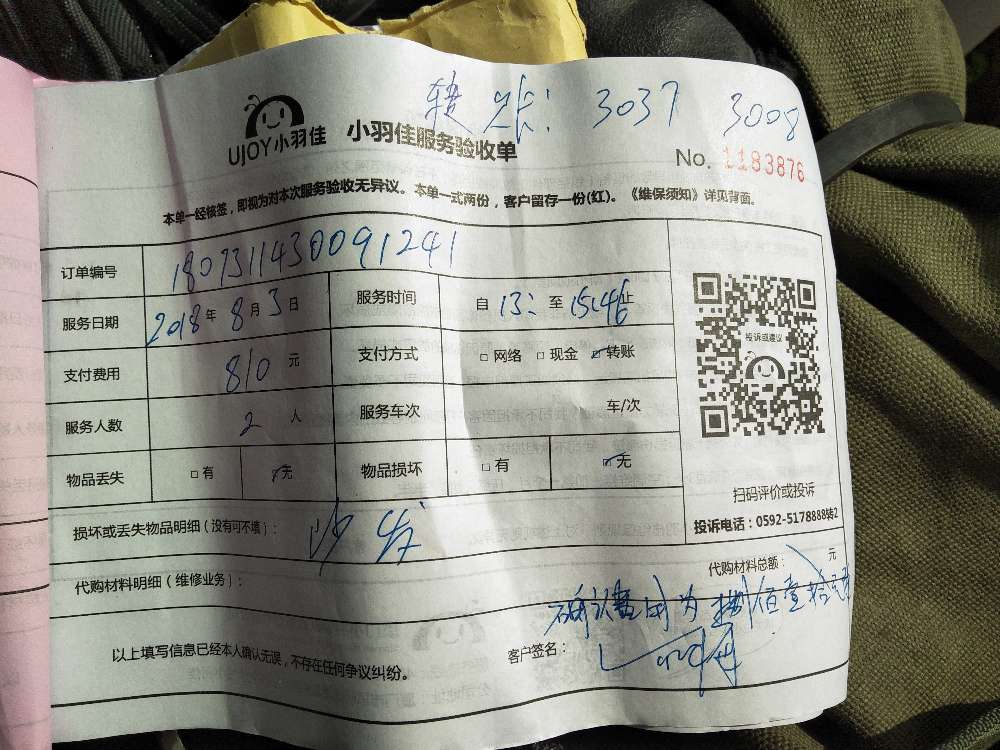 转账: 3037 3008
UJOY小羽佳 小羽佳服务验收单
No. 1183876
本单一经核签，即视为对本次服务验收无异议。本单一式两份，客户留存一份(红)。《维保须知》详见背面。
订单编号 180731143009 1241
服务日期 2018年8月3日 服务时间 自 13: 至 15:46 止
支付费用 810 元 支付方式 □网络 □现金 ☑转账
服务人数 2 人 服务车次 车/次
投诉或建议
物品丢失 □有 ☑无 物品损坏 □有 ☑无
扫码评价或投诉
投诉电话：0592-5178888转2
损坏或丢失物品明细（没有可不填）： 沙发
代购材料明细（维修业务）： 代购材料总额： 元
确认费用为捌佰壹拾元整
以上填写信息已经本人确认无误，不存在任何争议纠纷。 客户签名：